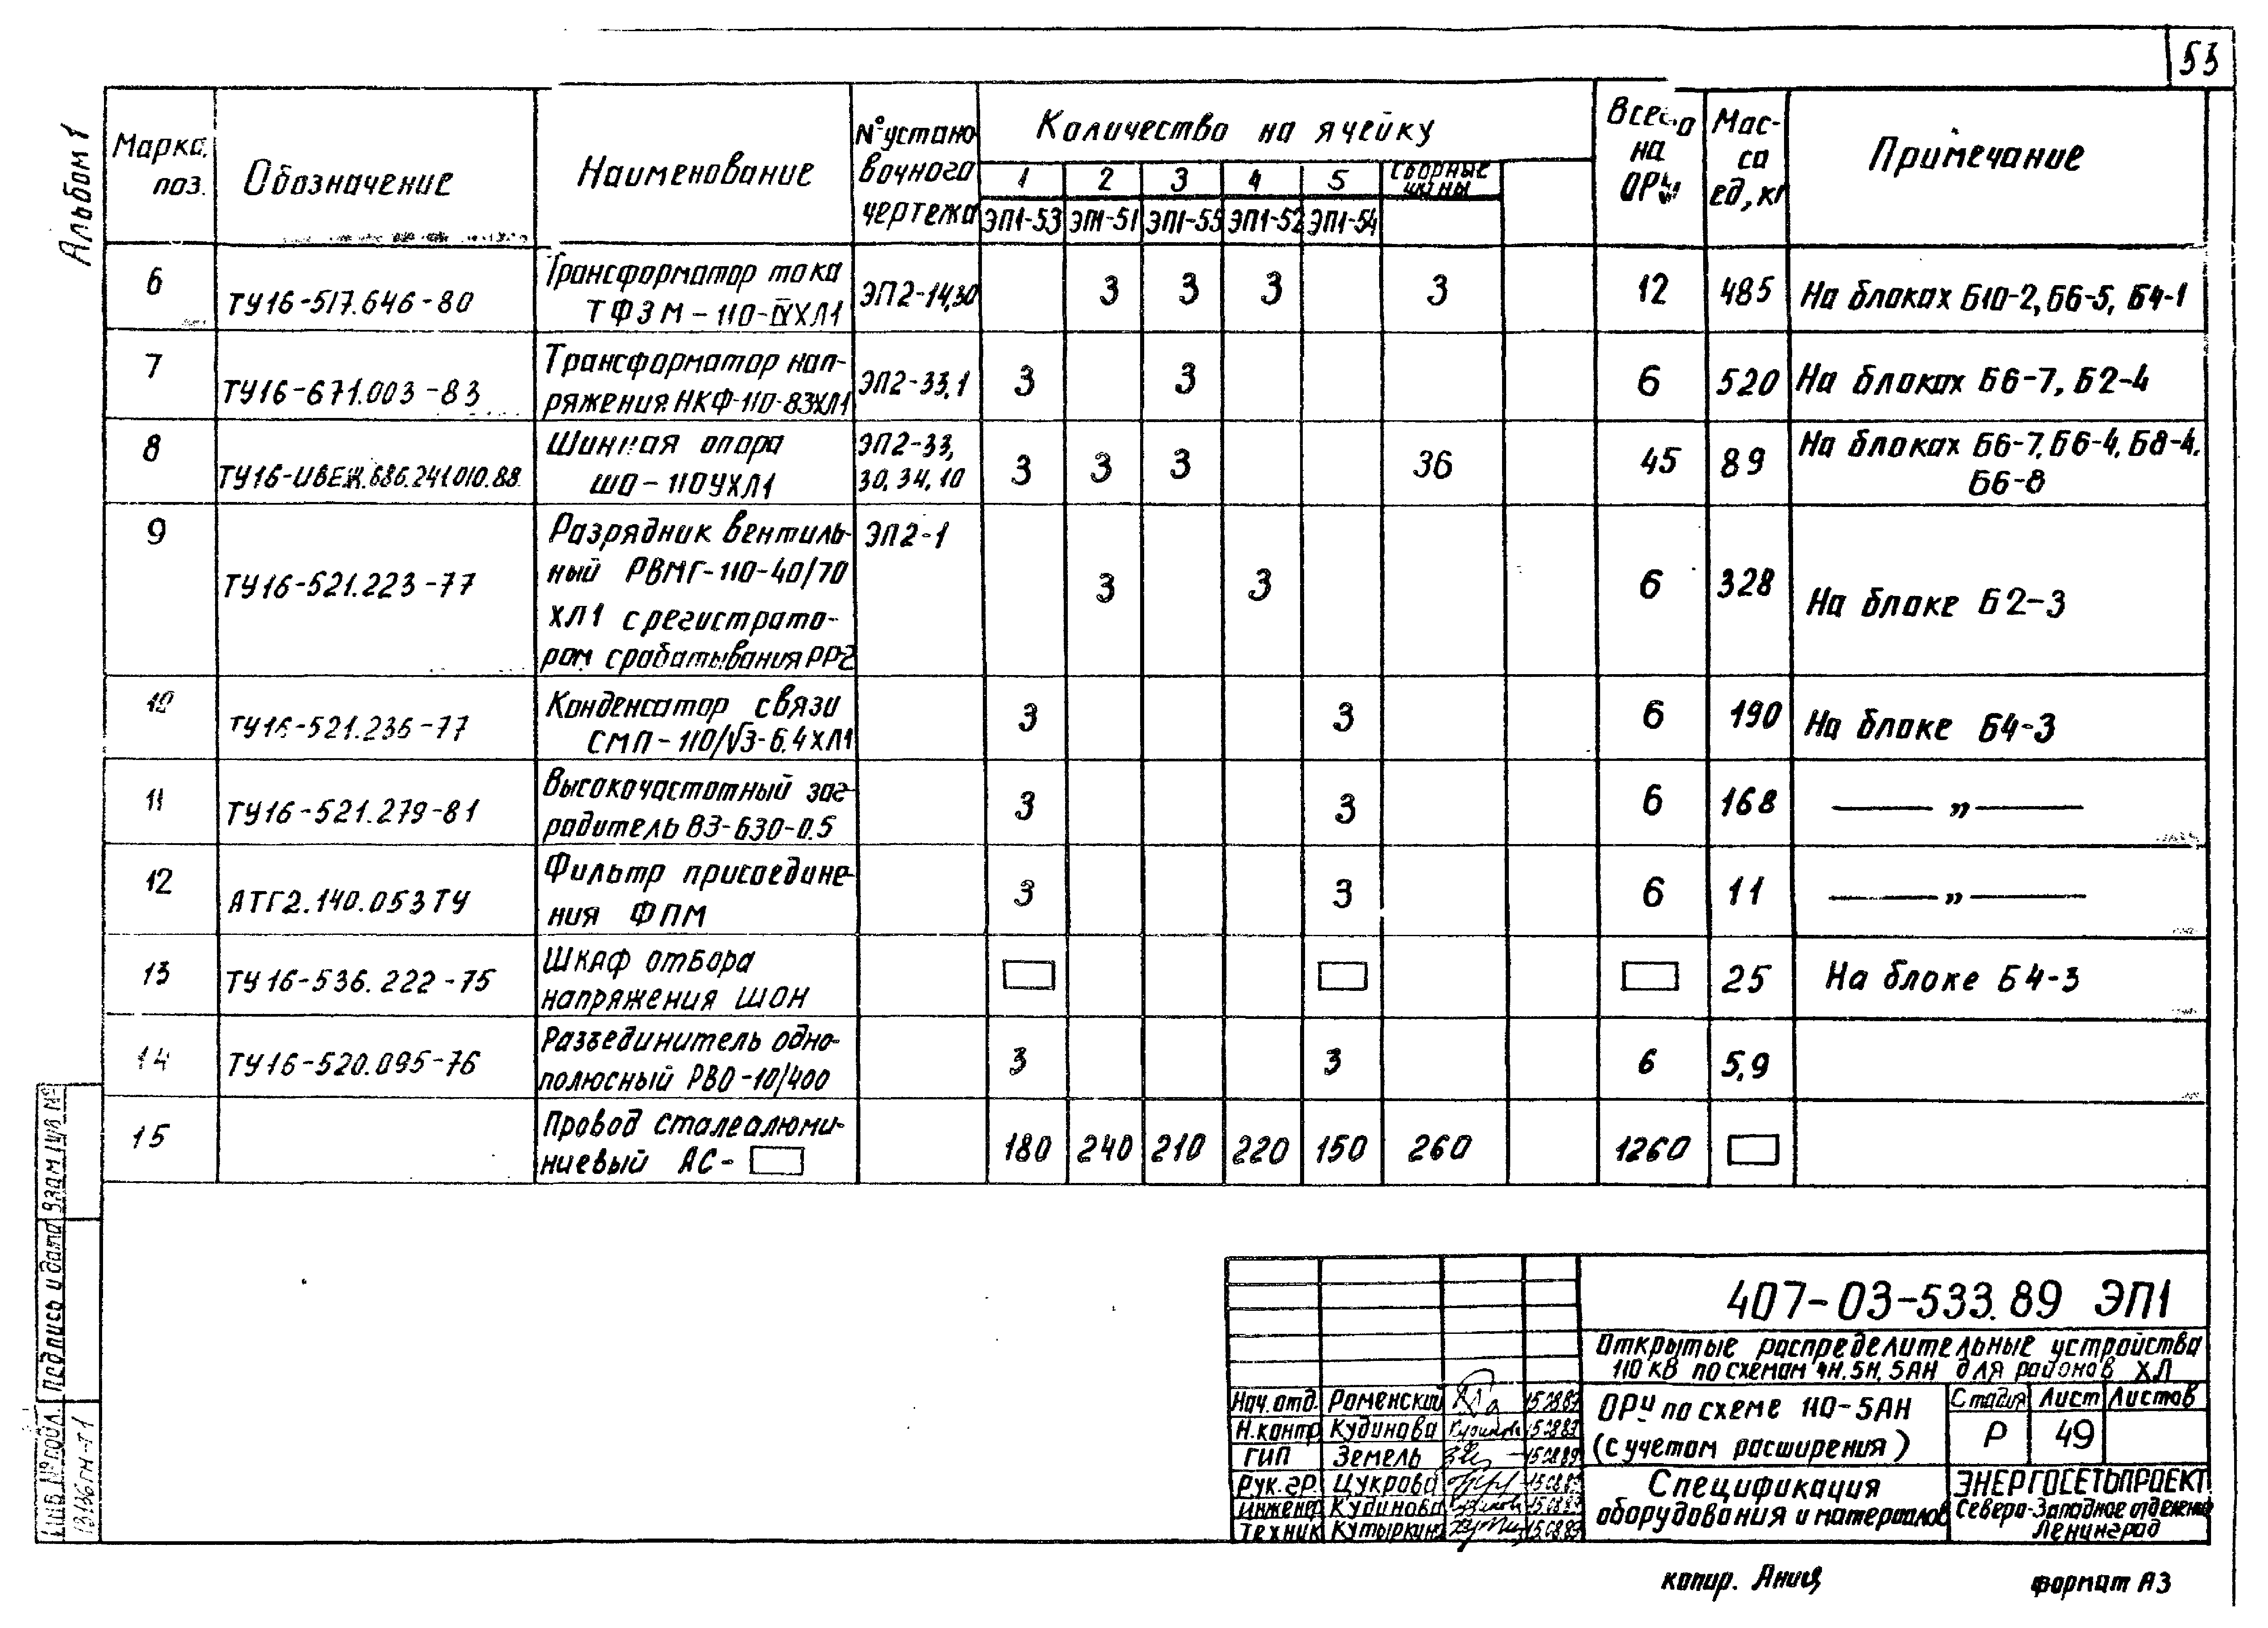 53
Альбом 1
Марка, поз.
Обозначение
Наименование
№ установочного чертежа
Количество на ячейку
1 2 3 4 5 Сборные шины
ЭП1-53 ЭП1-51 ЭП1-55 ЭП1-52 ЭП1-54
Всего на ОРУ
Масса ед, кг
Примечание
6 ТУ16-517.646-80 Трансформатор тока ЭП2-14,30 3 3 3 3 12 485 На блоках Б10-2, Б6-5, Б4-1
ТФЗМ-110-IVХЛ1
7 ТУ16-671.003-83 Трансформатор нап- ЭП2-33,1 3 3 6 520 На блоках Б6-7, Б2-4
ряжения НКФ-110-83ХЛ1
8 ТУ16-ИВЕЖ.686.241.010.88 Шинная опора ЭП2-33, 3 3 3 36 45 89 На блоках Б6-7, Б6-4, Б8-4,
ШО-110УХЛ1 30, 34, 10 Б6-8
9 ТУ16-521.223-77 Разрядник вентиль- ЭП2-1 3 3 6 328 На блоке Б2-3
ный РВМГ-110-40/70
ХЛ1 с регистрато-
ром срабатывания РР-2
10 ТУ16-521.236-77 Конденсатор связи 3 3 6 190 На блоке Б4-3
СМП-110/√3-6,4ХЛ1
11 ТУ16-521.279-81 Высокочастотный заг- 3 3 6 168 — „ —
радитель ВЗ-630-0.5
12 АТГ2.140.053ТУ Фильтр присоедине- 3 3 6 11 — „ —
ния ФПМ
13 ТУ16-536.222-75 Шкаф отбора 25 На блоке Б4-3
напряжения ШОН
14 ТУ16-520.095-76 Разъединитель одно- 3 3 6 5,9
полюсный РВО-10/400
15 Провод сталеалюми- 180 240 210 220 150 260 1260
ниевый АС-
407-03-533.89 ЭП1
Открытые распределительные устройства
110 кВ по схемам 4Н, 5Н, 5АН для районов ХЛ
Нач. отд. Роменский 15.08.89
Н. контр Кудинова 15.08.89
ГИП Земель 15.08.89
Рук. гр. Цукрова 15.08.89
Инженер Кудинова 15.08.89
Техник Кутыркин 15.08.89
ОРУ по схеме 110-5АН
(с учетом расширения)
Стадия Лист Листов
Р 49
Спецификация
оборудования и материалов
ЭНЕРГОСЕТЬПРОЕКТ
Северо-Западное отделение
Ленинград
Взам. инв. №
Подпись и дата
Инв. № подл.
13136тм-т1
копир. Аниц
формат А3